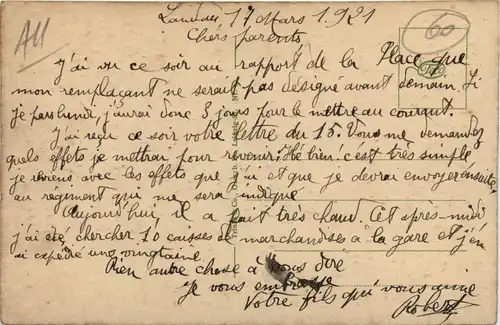 Landau 17 Mars 1921
Chers parents
J'ai vu ce soir au rapport de la Place que
mon remplaçant ne serait pas désigné avant demain. Si
je pars lundi j'aurai donc 3 jours pour le mettre au courant.
J'ai reçu ce soir votre lettre du 15. Vous me demandez
quels effets je mettrai pour revenir. Hé bien! c'est très simple
je reviens avec les effets que j'ai et que je devrai envoyer ensuite
au régiment qui me sera indiqué
Aujourd'hui il a fait très chaud. Cet après-midi
j'ai été chercher 10 caisses de marchandises à la gare et j'en
ai expédié une vingtaine
Rien autre chose à vous dire
Je vous embrasse
Votre fils qui vous aime
Robert
60